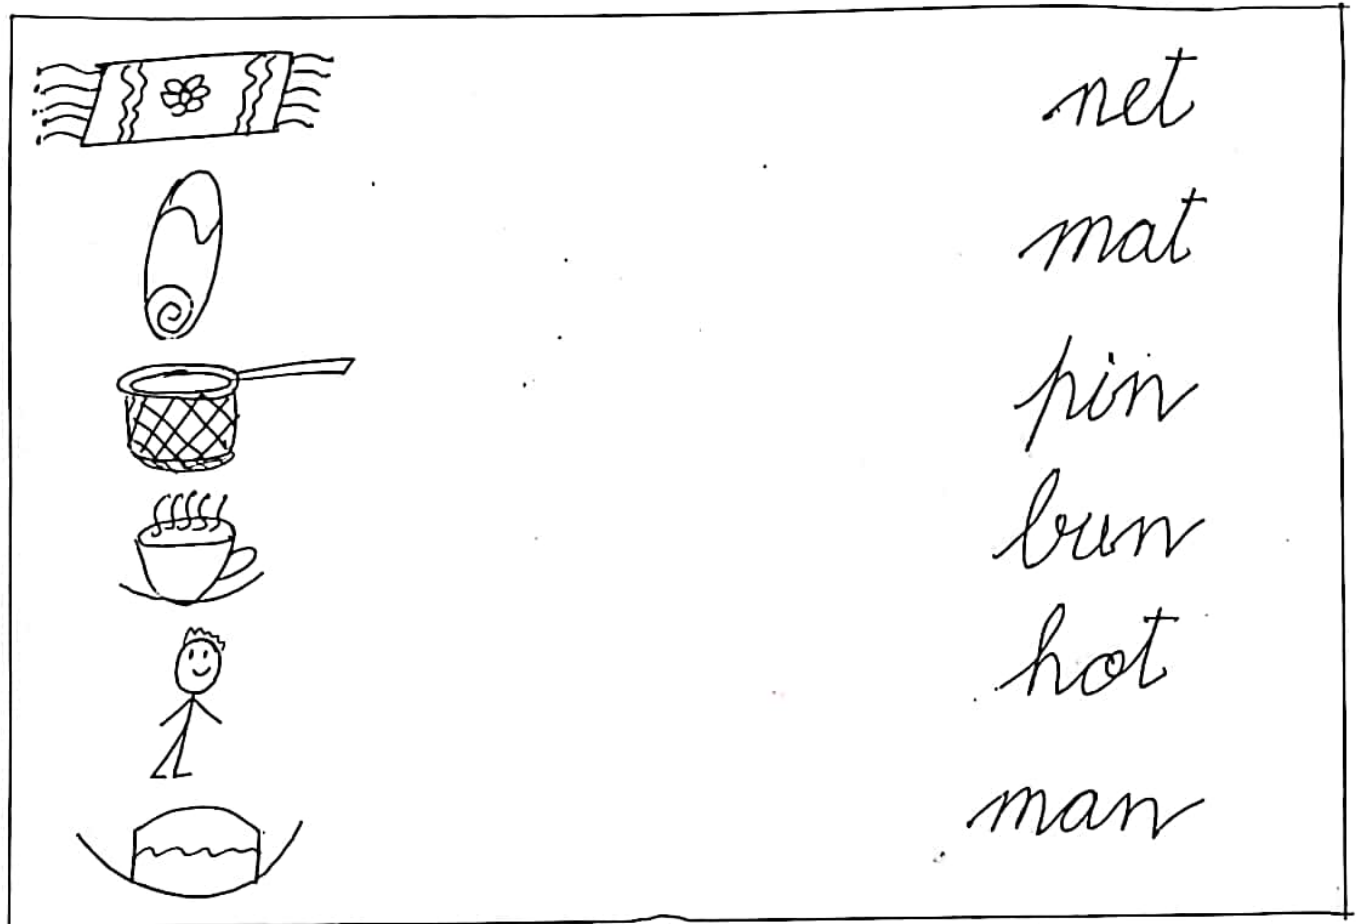 net
mat
pin
bun
hot
man